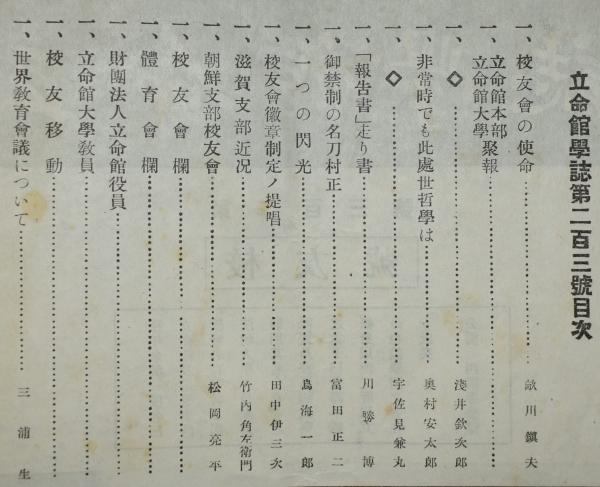 立命館學誌第二百三號目次
一、校友會の使命……… 敵川鎭夫
一、立命館本部立命館大學彙報………
一、◇……… 淺井欽次郎
一、非常時でも此處世哲學は……… 奥村安太郎
一、◇……… 宇佐見兼丸
一、「報告書」走り書……… 川勝博
一、御禁制の名刀村正……… 富田正二
一、一つの閃光……… 鳥海一郎
一、校友會徽章制定ノ提唱……… 田中伊三次
一、滋賀支部近况……… 竹内角左衞門
一、朝鮮支部校友會……… 松岡亮平
一、校友會欄………
一、體育會欄………
一、財團法人立命館役員………
一、立命館大學敎員………
一、校友移動………
一、世界敎育會議について……… 三浦生